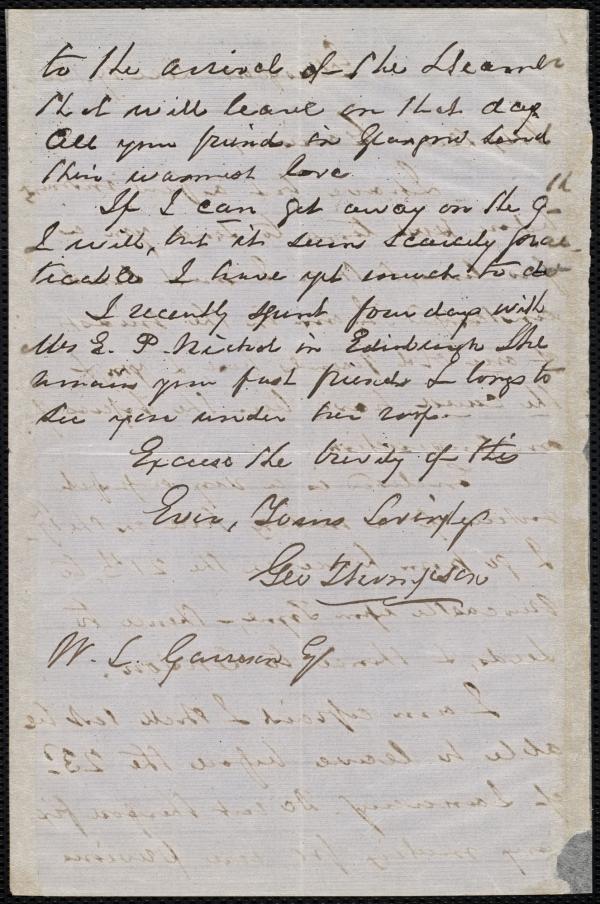 to the arrival of the Steamer
that will leave on that day
All your friends in Glasgow send
their warmest love
If I can get away on the 9th
I will, but it seems scarcely prac-
ticable I have yet much to do
I recently spent four days with
Mrs E. P. Nichol in Edinburgh She
remains your fast friend & longs to
see you under her roof.
Excuse the brevity of this
Ever, Yours Lovingly
Geo Thompson
W. L. Garrison Esq